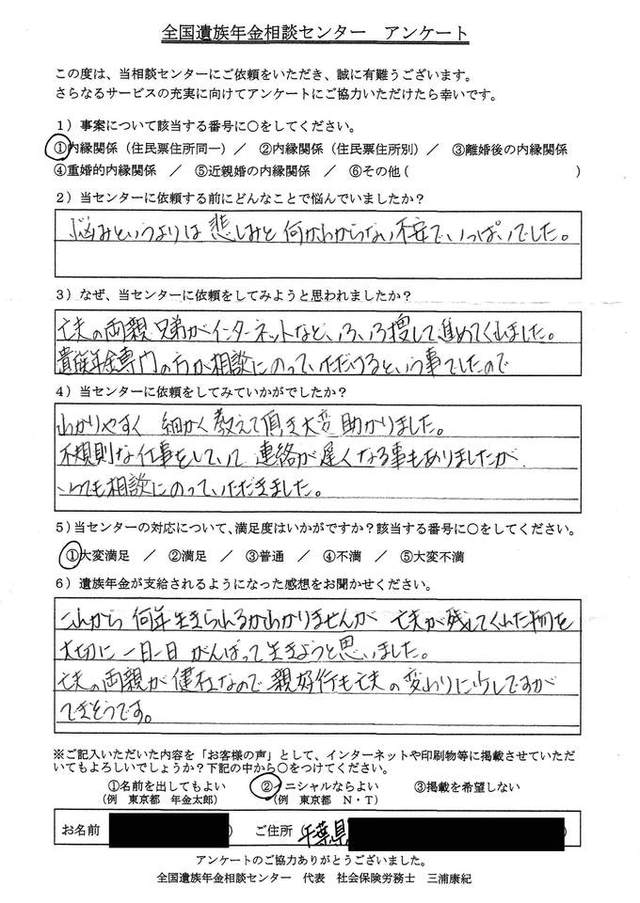 全国遺族年金相談センター　アンケート
この度は、当相談センターにご依頼をいただき、誠に有難うございます。
さらなるサービスの充実に向けてアンケートにご協力いただけたら幸いです。
1）事案について該当する番号に○をしてください。
①内縁関係（住民票住所同一）／　②内縁関係（住民票住所別）／　③離婚後の内縁関係
④重婚的内縁関係　／　⑤近親婚の内縁関係　／　⑥その他（　　　　　　　　　　　　）
2）当センターに依頼する前にどんなことで悩んでいましたか？
悩みというよりは 悲しみと 何かわからない不安で、いっぱいでした。
3）なぜ、当センターに依頼をしてみようと思われましたか？
亡夫の両親 兄弟がインターネットなど、いろいろ捜して進めてくれました。
遺族年金専門の方が相談にのっていただけるという事でしたので
4）当センターに依頼をしてみていかがでしたか？
わかりやすく 細かく教えて頂き大変助かりました。
不規則な仕事をしていて 連絡が遅くなる事もありましたが、
いつでも相談にのっていただきました。
5）当センターの対応について、満足度はいかがですか？該当する番号に○をしてください。
①大変満足　／　②満足　／　③普通　／　④不満　／　⑤大変不満
6）遺族年金が支給されるようになった感想をお聞かせください。
これから 何年生きられるかわかりませんが 亡夫が残してくれた物を
大切に 一日一日 がんばって生きようと思いました。
亡夫の両親が健在なので 親好行も亡夫の変わりに少しですが
できそうです。
※ご記入いただいた内容を「お客様の声」として、インターネットや印刷物等に掲載させていただ
いてもよろしいでしょうか？下記の中から○をつけてください。
①名前を出してもよい　②イニシャルならよい　③掲載を希望しない
（例　東京都　年金太郎）　（例　東京都　N・T）
お名前　）　ご住所　千葉県　）
アンケートのご協力ありがとうございました。
全国遺族年金相談センター　代表　社会保険労務士　三浦康紀